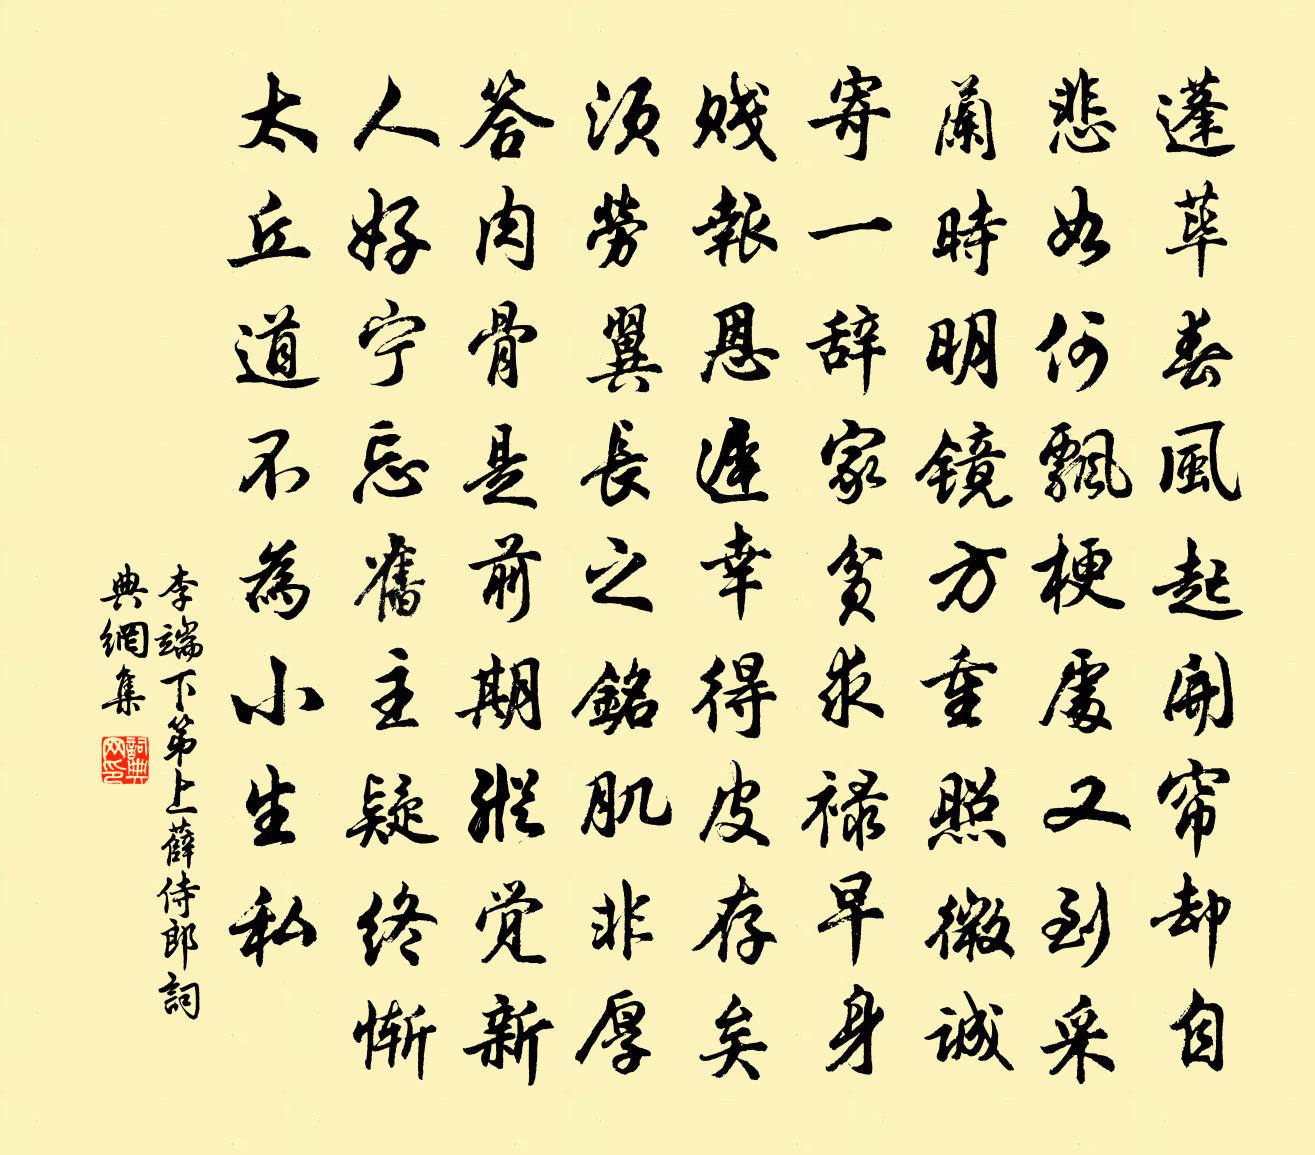 蓬荜春風起開帘却自
悲如何飄梗處又到采
蘭時明镜方重照微誠
寄一辞家貧求禄早身
贱報恩遲幸得皮存矣
須勞翼長之銘肌非厚
答肉骨是前期縱觉新
人好宁忘舊主疑终惭
太丘道不為小生私
李端下第上薛侍郎詞
典網集
詞典
网印